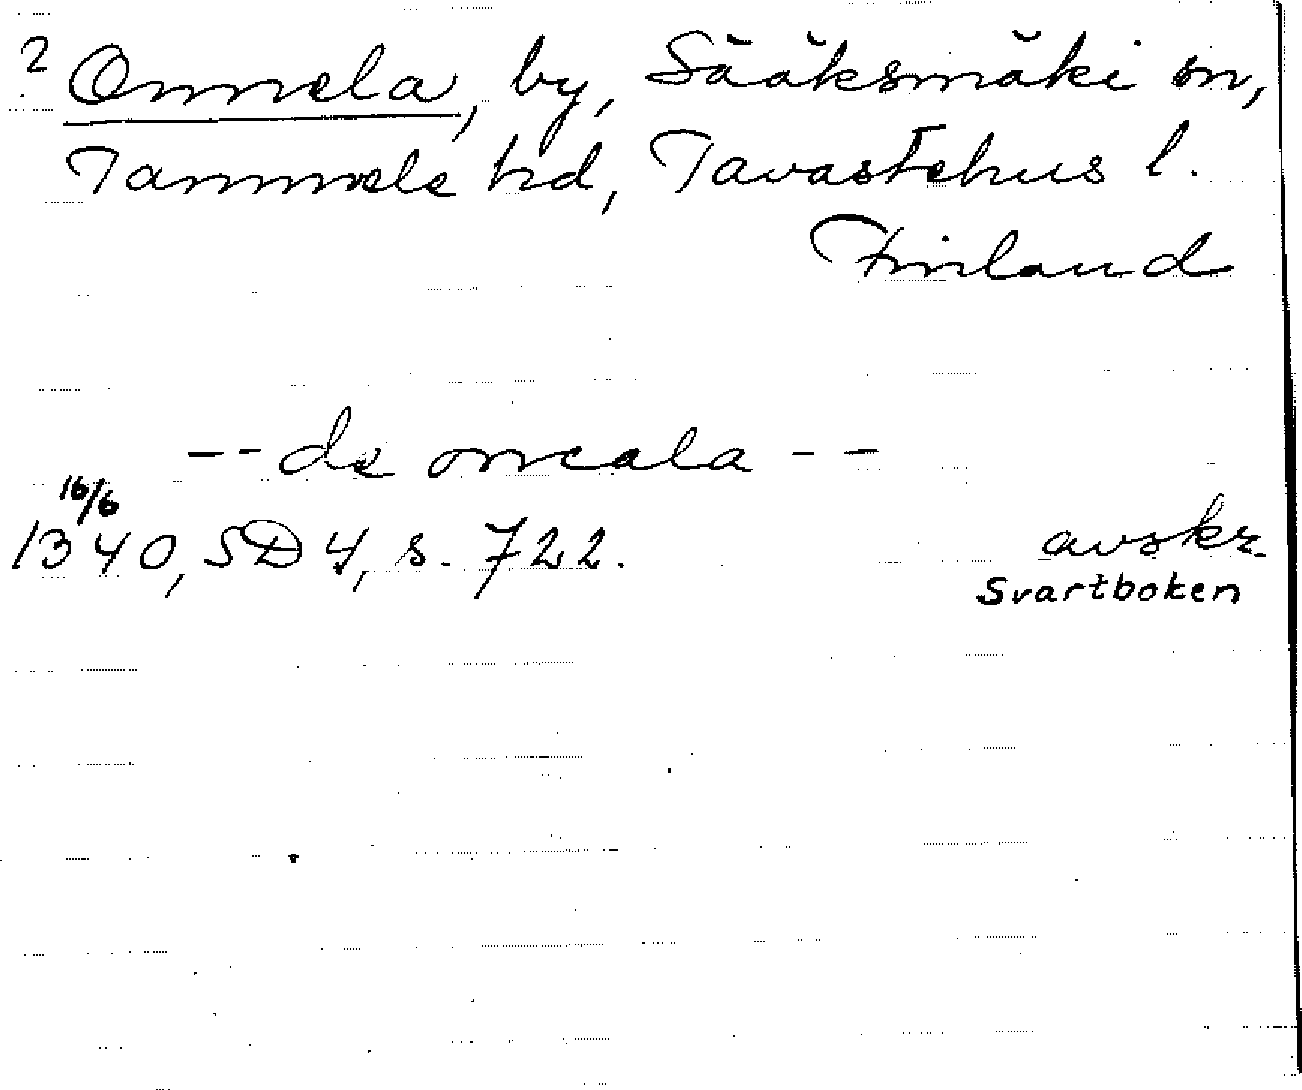 ? Onnela, by, Sääksmäki sn,
Tammela hd, Tavastehus l.
Finland
-- de omeala --
16/6
1340, SD 4, s. 722.
avskr.
Svartboken